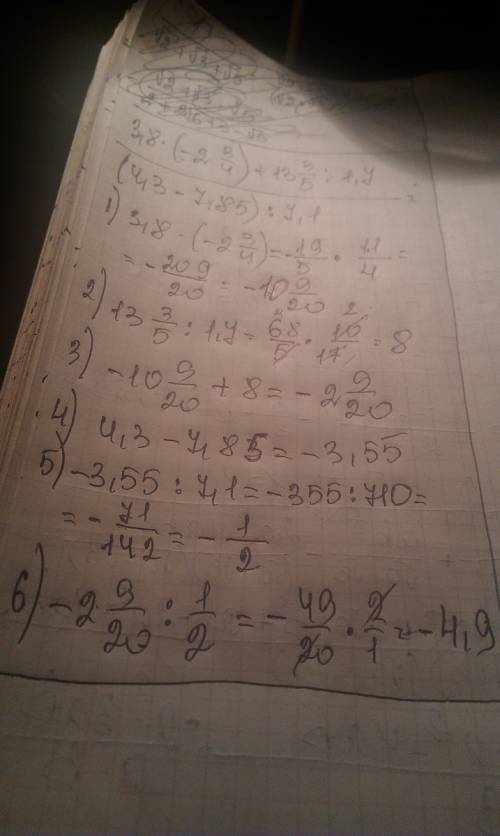 3,8 · (-2 3/4) + 13 3/5 : 1,7
(4,3 - 7,85) : 7,1
1) 3,8 · (-2 3/4) = -19/5 · 11/4 =
= -209/20 = -10 9/20
2) 13 3/5 : 1,7 = 68/5 · 10/17 = 8
3) -10 9/20 + 8 = -2 9/20
4) 4,3 - 7,85 = -3,55
5) -3,55 : 7,1 = -355 : 710 =
= -71/142 = -1/2
6) -2 9/20 : 1/2 = -49/20 · 2/1 = -4,9